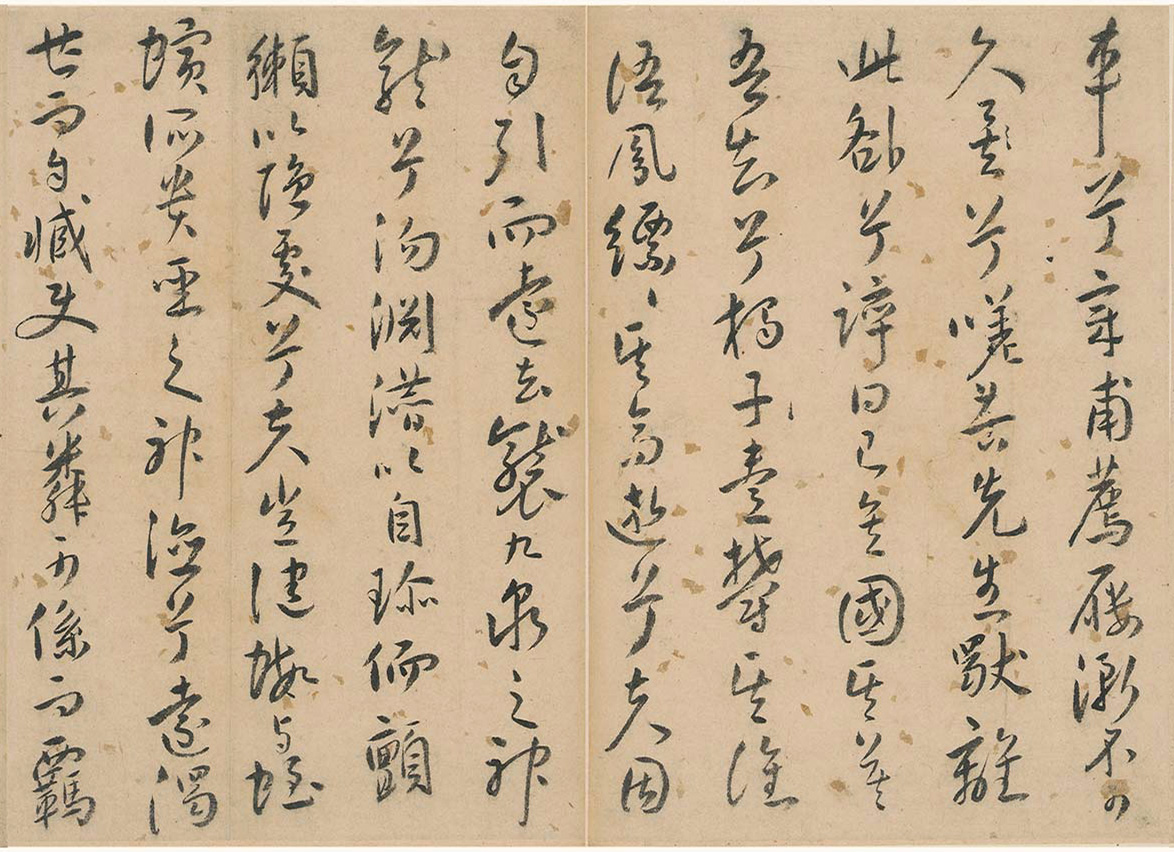 車兮章甫薦屨漸不可
久兮嗟苦先生獨離
此咎兮誶曰已矣國其莫
吾知兮獨子壹鬱其誰
語鳳縹〻其高逝兮夫固
自引而遠去襲九泉之神
龍兮沕淵潛以自珍偭
獺以隱處兮夫豈從蝦與蛭
螾所貴聖之神德兮遠濁
世而自臧使其麟可係而羈